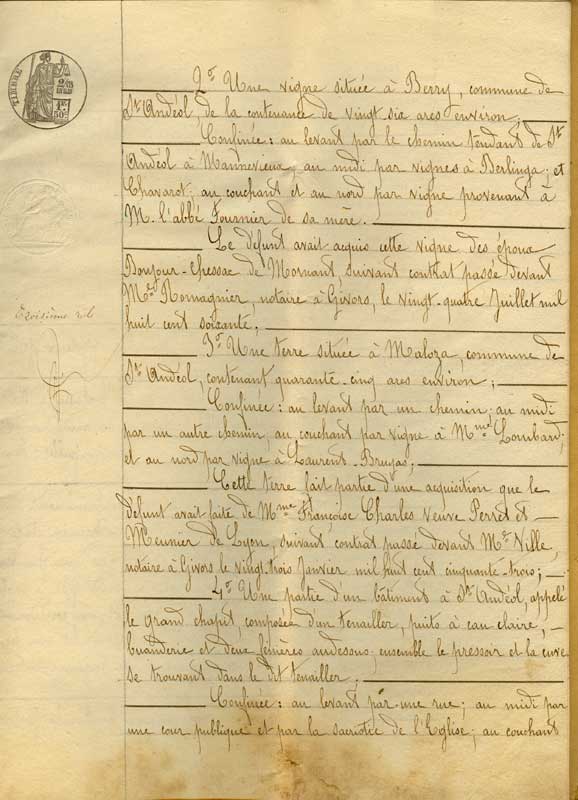 TIMBRE
2/10 EN SUS
1F. 50C.
Troisième rôle
2º Une vigne située à Berry, commune de
St Andéol, de la contenance de vingt six ares environ;
Confinée: au levant par le chemin tendant de St
Andéol à Mannevieux, au midi par vignes à Berlinga; et
Chavarot, au couchant et au nord par vigne provenant à
M. l'abbé Fournier de sa mère.
Le défunt avait acquis cette vigne des époux
Bonjour-Chessac de Mornant, suivant contrat passé devant
Me Romagnier, notaire à Givors, le vingt-quatre Juillet mil
huit cent soixante;
3º Une terre située à Maloza, commune de
St Andéol, contenant quarante-cinq ares environ;
Confinée: au levant par un chemin; au midi
par un autre chemin, au couchant par vigne à Mme Lombard;
et au nord par vigne à Laurent-Bruyas;
Cette terre fait partie d'une acquisition que le
défunt avait faite de Mme Françoise Charles Veuve Perret et
Meunier de Lyon, suivant contrat passé devant Me Ville,
notaire à Givors le vingt-trois Janvier mil huit cent cinquante-trois;
4º Une partie d'un bâtiment à St Andéol, appelé
le grand chapit, composée d'un tenailler, puits à eau claire,
buanderie et deux fenières audessous; ensemble le pressoir et la cuve
se trouvant dans le dit tenailler;
Confinée: au levant par une rue; au midi par
une cour publique et par la sacristie de l'Eglise; au couchant